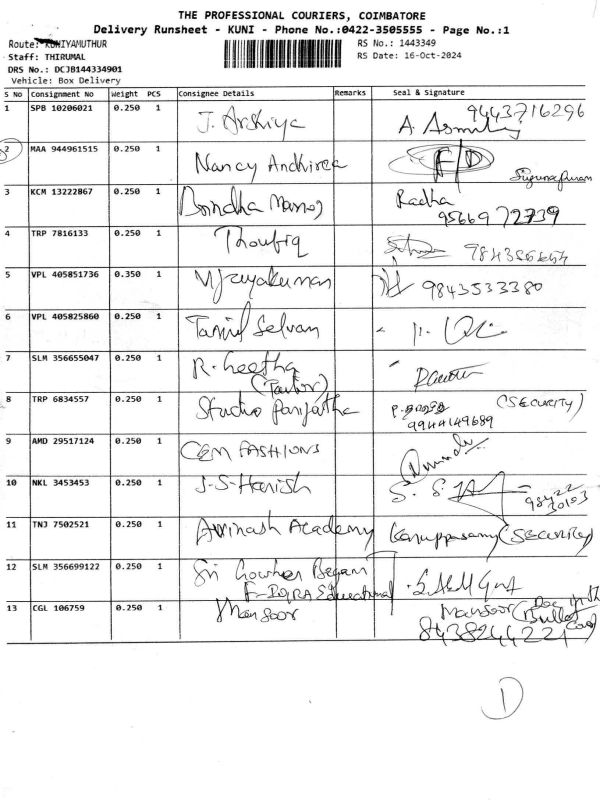 THE PROFESSIONAL COURIERS, COIMBATORE
Delivery Runsheet - KUNI - Phone No.:0422-3505555 - Page No.:1
Route: KUNIYAMUTHUR RS No.: 1443349
Staff: THIRUMAL RS Date: 16-Oct-2024
DRS No.: DCJB144334901
Vehicle: Box Delivery
S No Consignment No Weight PCS Consignee Details Remarks Seal & Signature
1 SPB 10206021 0.250 1 J. Arshiya 9443716296
2 MAA 944961515 0.250 1 Nancy
3 KCM 13222867 0.250 1 Radha
9566972739
4 TRP 7816133 0.250 1 Thoufiq
5 VPL 405851736 0.350 1 Vijayakumar 9843533380
6 VPL 405825860 0.250 1 Tamil Selvan
7 SLM 356655047 0.250 1 R. Geetha
(Tailor)
8 TRP 6834557 0.250 1 Studio Parijatha (SECURITY)
9944149689
9 AMD 29517124 0.250 1 FASHIONS
10 NKL 3453453 0.250 1 J.S. Harish
11 TNJ 7502521 0.250 1 Avinash Academy Karuppasamy (SECURITY)
12 SLM 356699122 0.250 1 Sri Gowher Begam
Educational
13 CGL 106759 0.250 1 Mansoor Mansoor
8438244221
1